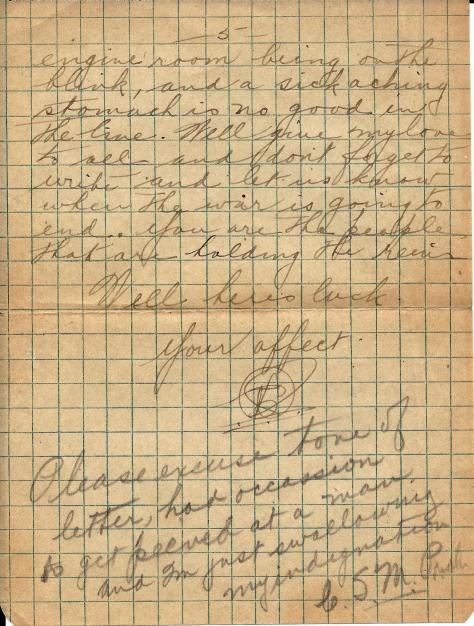 5
engine room being on the
blink, and a sick aching
stomach is no good in
the line. Well give my love
to all and dont forget to
write and let us know
when the war is going to
end.. you are the people
that are holding the reins
Well heres luck.
your affect.
Please excuse tone of
letter, had occassion
to get peeved at a man
and Im just swallowing
my indignation
C. S. M.